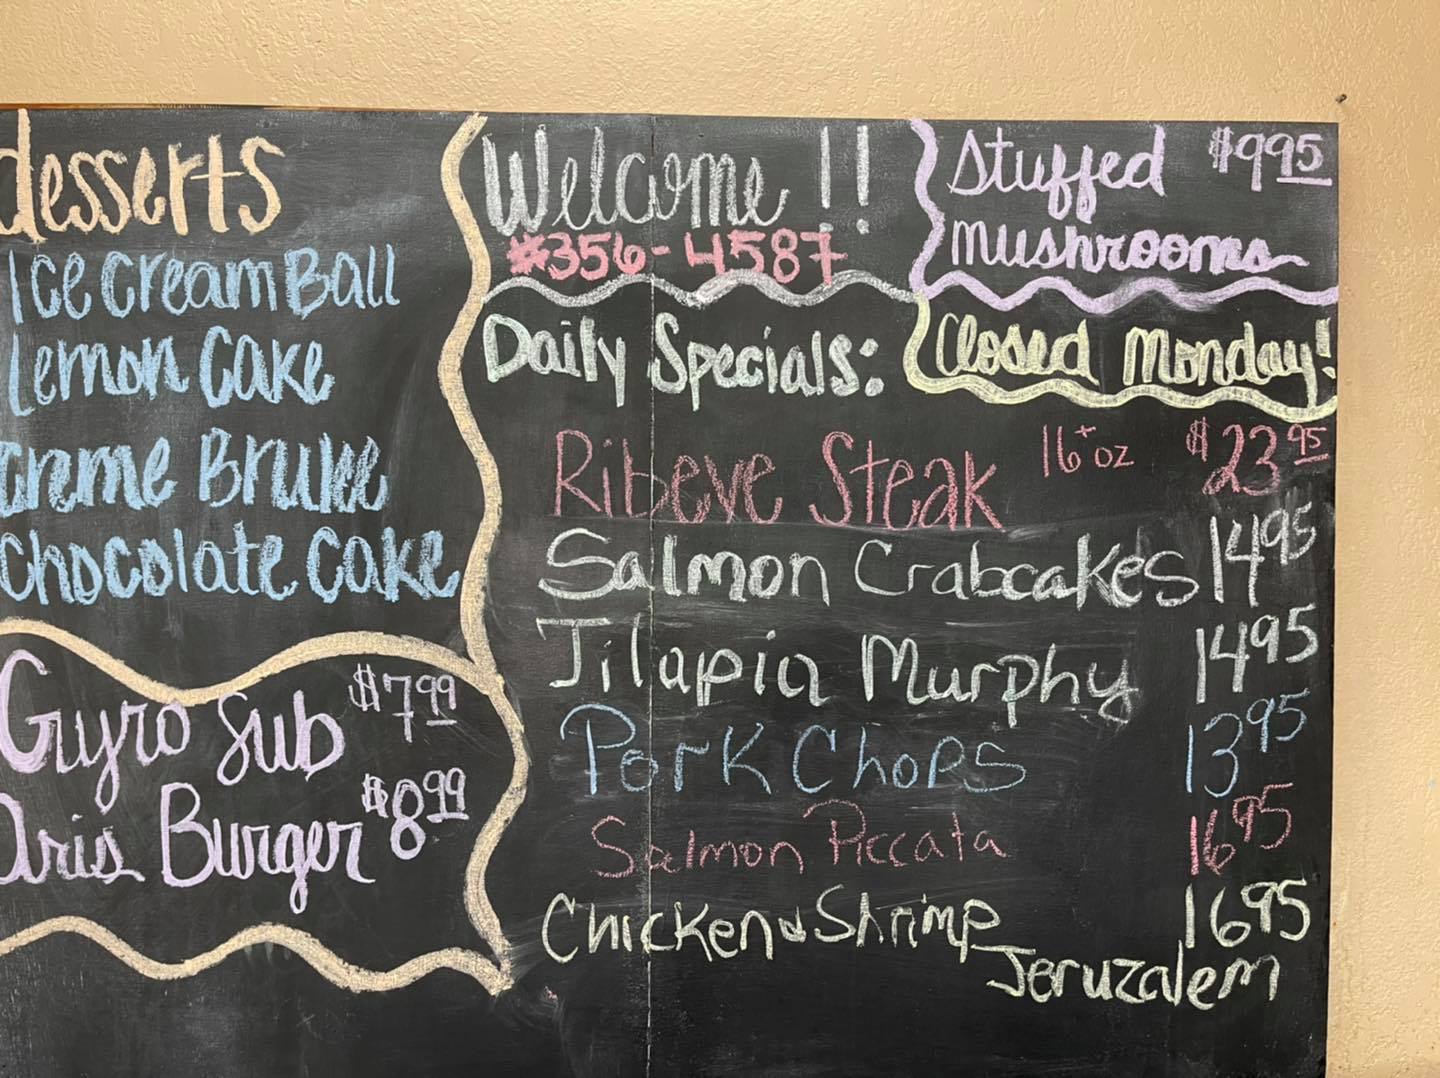 desserts
Ice Cream Ball
Lemon Cake
Creme Brulee
Chocolate Cake
Gyro Sub $7.99
Aris Burger $8.99
Welcome!!
#356-4587
Stuffed $9.95
Mushrooms
Closed Monday!
Daily Specials:
Ribeye Steak 16+ oz $23.95
Salmon Crabcakes 14.95
Tilapia Murphy 14.95
Pork Chops 13.95
Salmon Piccata 16.95
Chicken & Shrimp 16.95
Jeruzalem